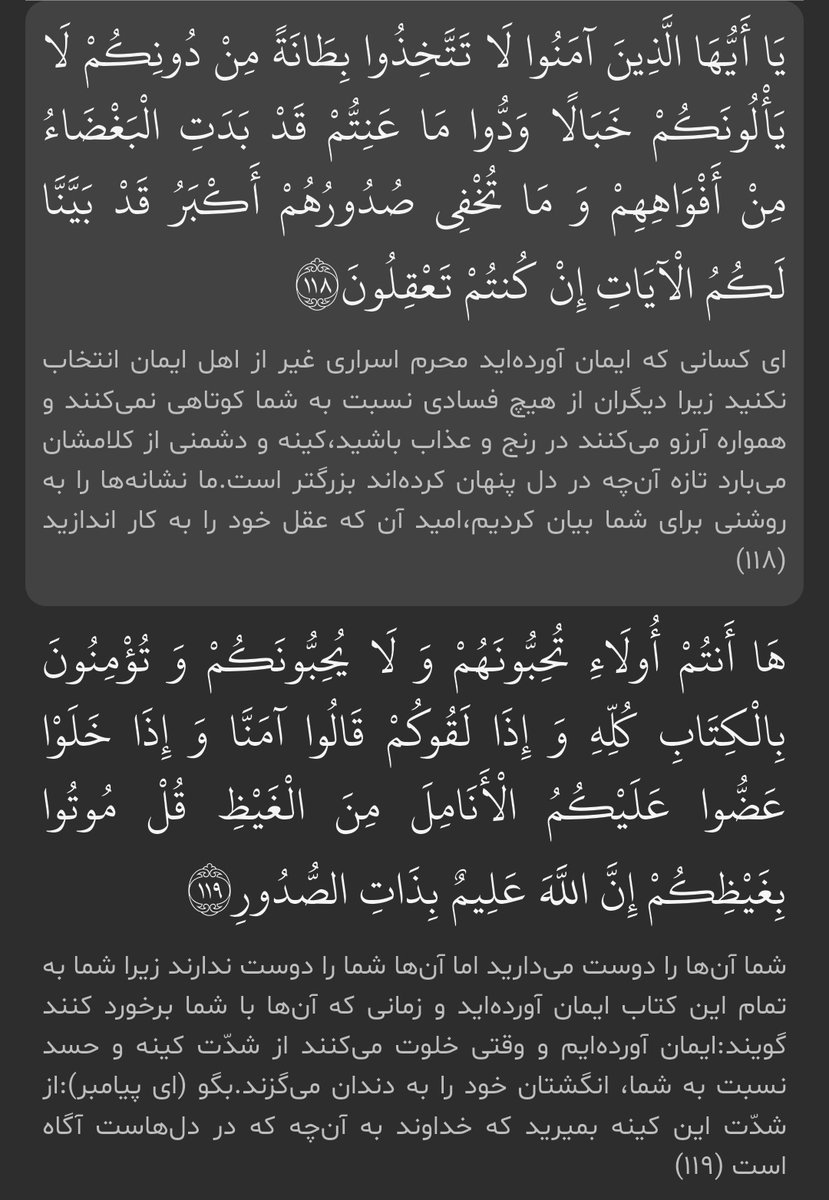 يَا أَيُّهَا الَّذِينَ آمَنُوا لَا تَتَّخِذُوا بِطَانَةً مِنْ دُونِكُمْ لَا
يَأْلُونَكُمْ خَبَالًا وَدُّوا مَا عَنِتُّمْ قَدْ بَدَتِ الْبَغْضَاءُ
مِنْ أَفْوَاهِهِمْ وَ مَا تُخْفِى صُدُورُهُمْ أَكْبَرُ قَدْ بَيَّنَّا
لَكُمُ الْآيَاتِ إِنْ كُنتُمْ تَعْقِلُونَ ١١٨
ای کسانی که ایمان آورده‌اید محرم اسراری غیر از اهل ایمان انتخاب
نکنید زیرا دیگران از هیچ فسادی نسبت به شما کوتاهی نمی‌کنند و
همواره آرزو می‌کنند در رنج و عذاب باشید،کینه و دشمنی از کلامشان
می‌بارد تازه آن‌چه در دل پنهان کرده‌اند بزرگتر است.ما نشانه‌ها را به
روشنی برای شما بیان کردیم،امید آن که عقل خود را به کار اندازید
(۱۱۸)
هَا أَنتُمْ أُولَاءِ تُحِبُّونَهُمْ وَ لَا يُحِبُّونَكُمْ وَ تُؤْمِنُونَ
بِالْكِتَابِ كُلِّهِ وَ إِذَا لَقُوكُمْ قَالُوا آمَنَّا وَ إِذَا خَلَوْا
عَضُّوا عَلَيْكُمُ الْأَنَامِلَ مِنَ الْغَيْظِ قُلْ مُوتُوا
بِغَيْظِكُمْ إِنَّ اللَّهَ عَلِيمٌ بِذَاتِ الصُّدُورِ ١١٩
شما آن‌ها را دوست می‌دارید اما آن‌ها شما را دوست ندارند زیرا شما به
تمام این کتاب ایمان آورده‌اید و زمانی که آن‌ها با شما برخورد کنند
گویند:ایمان آورده‌ایم و وقتی خلوت می‌کنند از شدّت کینه و حسد
نسبت به شما، انگشتان خود را به دندان می‌گزند.بگو (ای پیامبر):از
شدّت این کینه بمیرید که خداوند به آن‌چه که در دل‌هاست آگاه
است (۱۱۹)